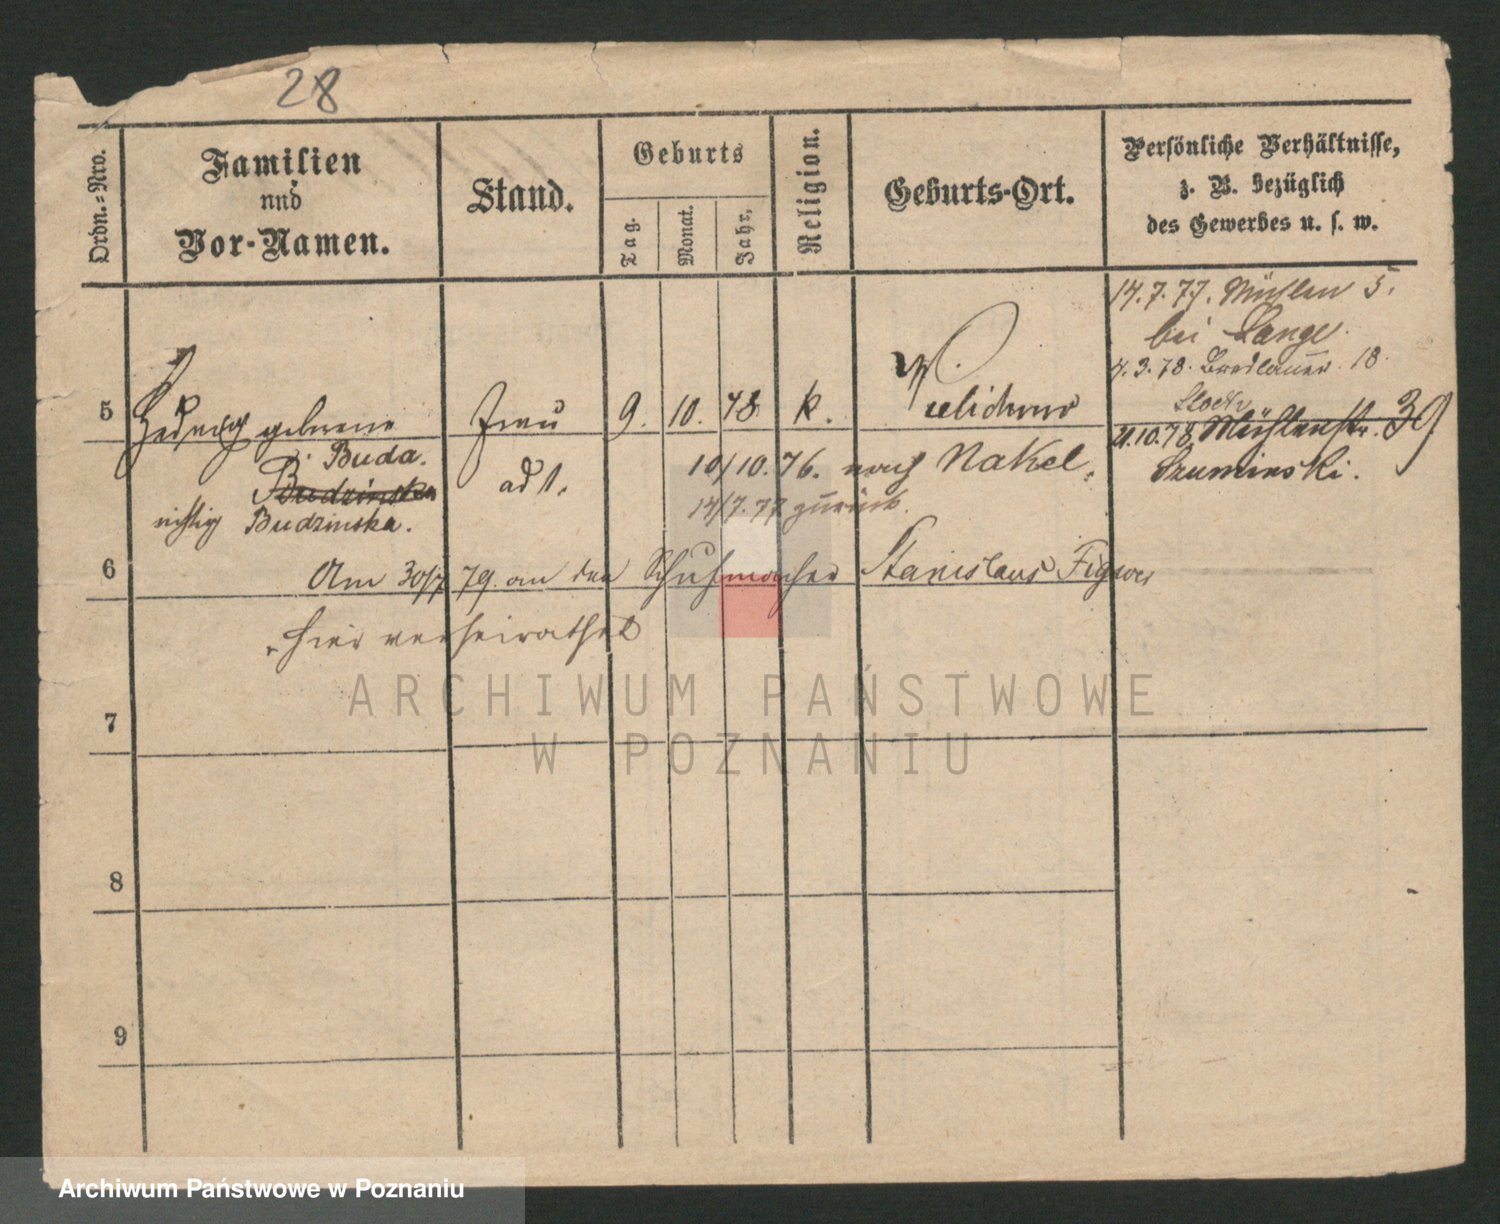 28
Ordn.-Nro.
Familien
und
Vor-Namen.
Stand.
Geburts
Tag.
Monat.
Jahr,
Religion.
Geburts-Ort.
Persönliche Verhältnisse,
z. B. bezüglich
des Gewerbes u. s. w.
14.7.77. Mühlen 5.
bei Lange.
4.3.78. Breslauer. 18.
5 Hedwig geborene Frau 9. 10. 48 k.
21.10.78 Mühlenstr. 39
Buda. ad 1. 10/10.76. nach Nakel.
Szuminski.
Budzinska
14/7.77 zurück.
richtig Budzinska.
6 Am 30/7 79. an den Schuhmacher Stanislaus Figwer
hier verheirathet
7
8
9
ARCHIWUM PAŃSTWOWE
W POZNANIU
Archiwum Państwowe w Poznaniu